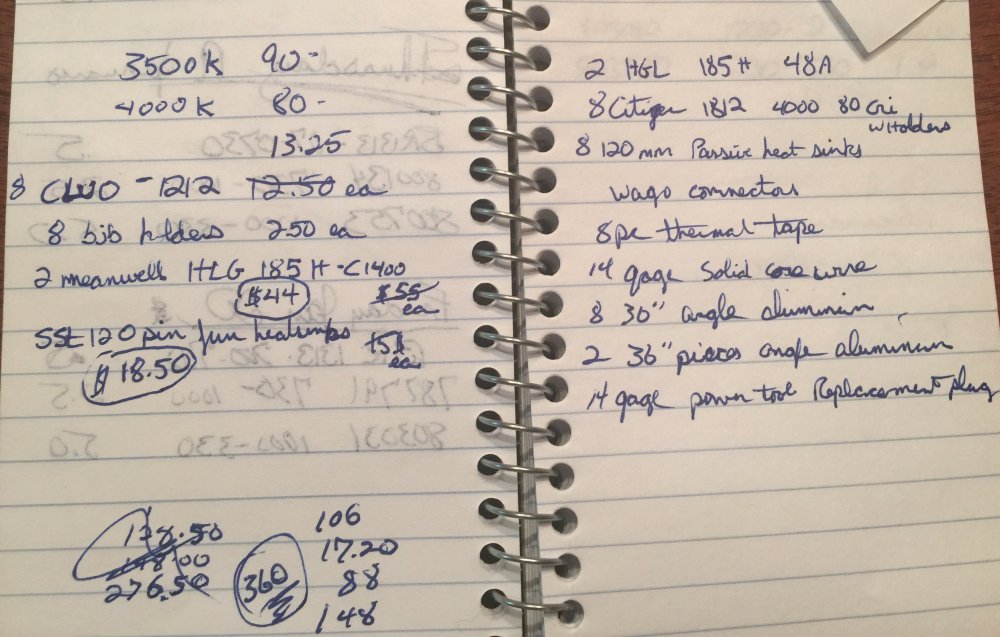 3500K 90-
4000K 80-
13.25
8 CLUO - 1212 12.50 ea
8 bjb holders 2.50 ea
2 meanwell HLG 185 H - C1400
$44 $55 ea
SSt 120 pin fin heatsinks
$18.50 ea
138.50
276.50
360
106
17.20
88
148
2 HGL 185H 48A
8 Citizen 1812 4000 80 Cri
w/Holders
8 120 mm Passive heat sinks
wago connectors
8pc thermal tape
14 gage Solid core wire
8 30" angle aluminum
2 36" pieces angle aluminum
14 gage power tool Replacement plug